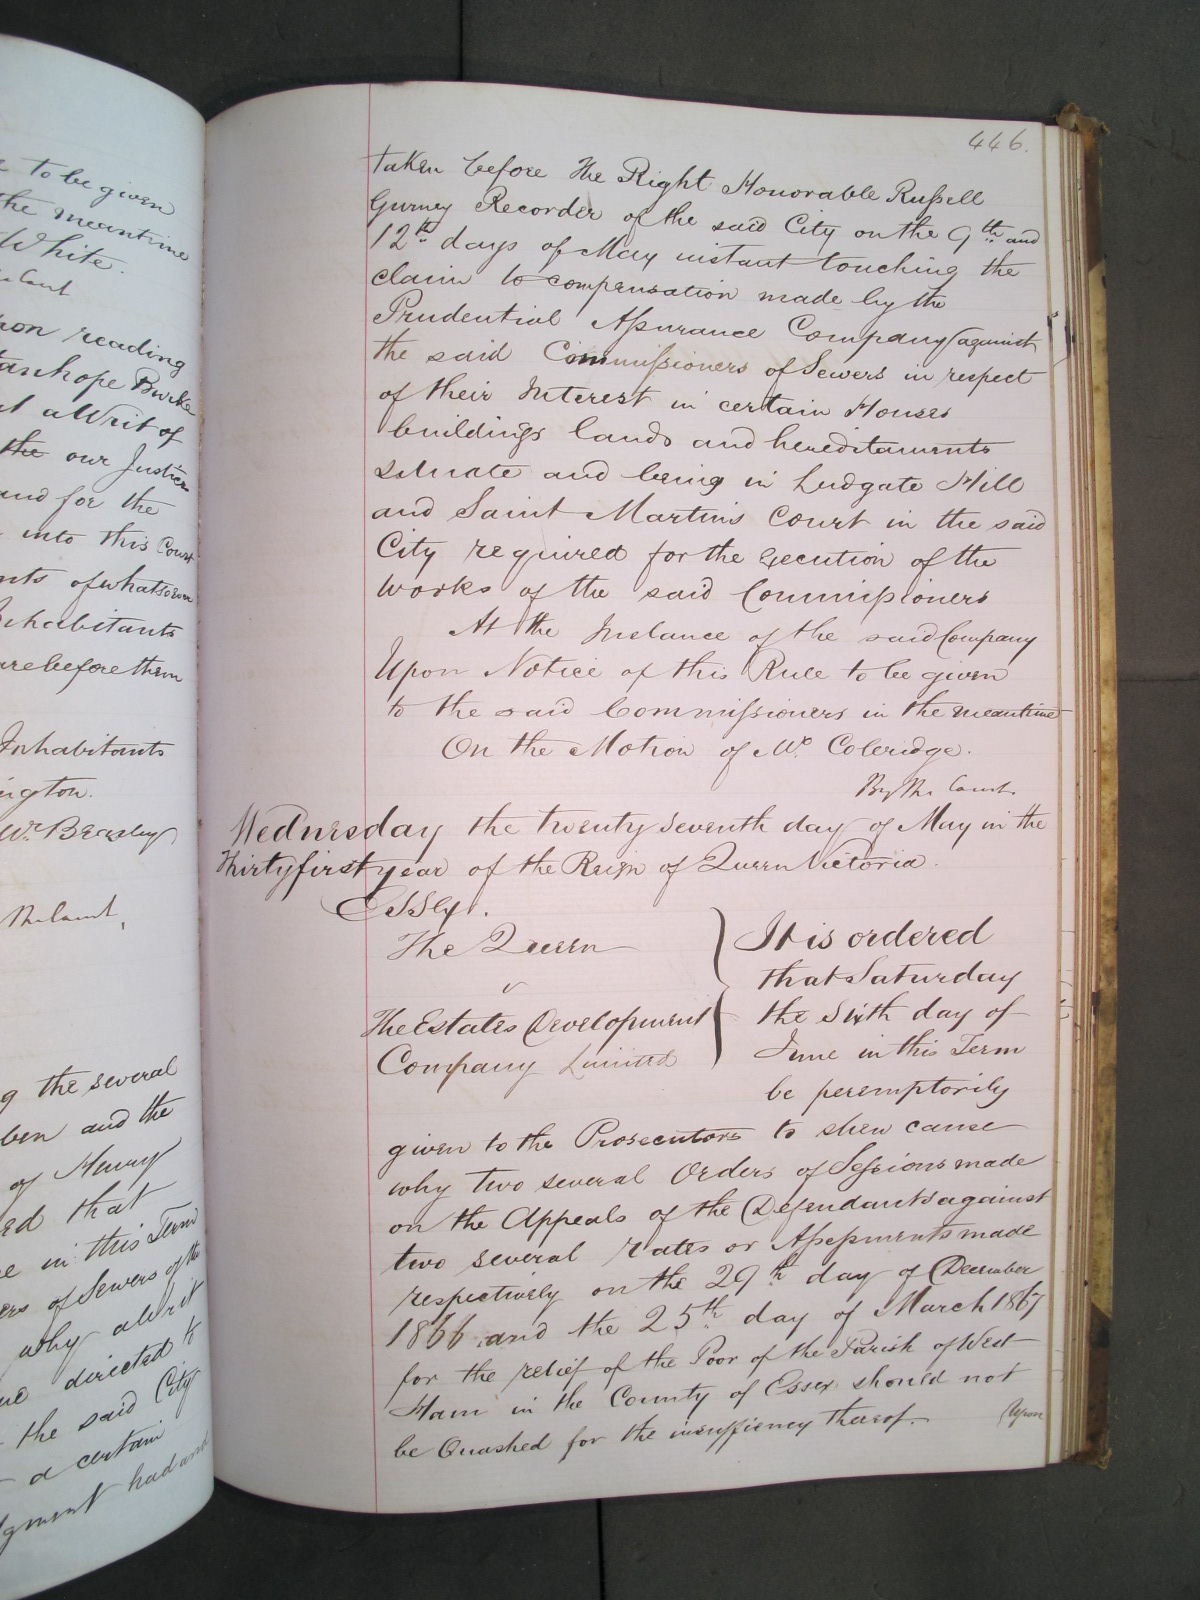 e to be given
the meantime
White.
upon reading
Stanhope Burke
a Writ of
the our Justices
and for the
into this Court
of whatsoever
Inhabitants
are before them
Inhabitants
ington.
Wr. Beasley
g the several
ben and the
of Henry
ed that
e in this Term
ers of Sewers of the
why a Writ
ue directed to
the said City
a certain
dgment had and
446.
taken before the Right Honorable Russell
Gurney Recorder of the said City on the 9th and
12th days of May instant touching the
claim to compensation made by the
Prudential Assurance Company against
the said Commissioners of Sewers in respect
of their Interest in certain Houses
buildings lands and hereditaments
situate and being in Ludgate Hill
and Saint Martins Court in the said
City required for the execution of the
works of the said Commissioners
At the Instance of the said Company
Upon Notice of this Rule to be given
to the said Commissioners in the meantime
On the Motion of Mr. Coleridge.
By the Court.
Wednesday the twenty seventh day of May in the
Thirty first year of the Reign of Queen Victoria.
Essex.
The Queen
v
The Estates Development
Company Limited
It is ordered
that Saturday
the Sixth day of
June in this Term
be peremptorily
given to the Prosecutors to shew cause
why two several Orders of Sessions made
on the Appeals of the Defendants against
two several rates or Assessments made
respectively on the 29th day of December
1866 and the 25th day of March 1867
for the relief of the Poor of the Parish of West
Ham in the County of Essex should not
be Quashed for the insufficiency thereof.
Upon